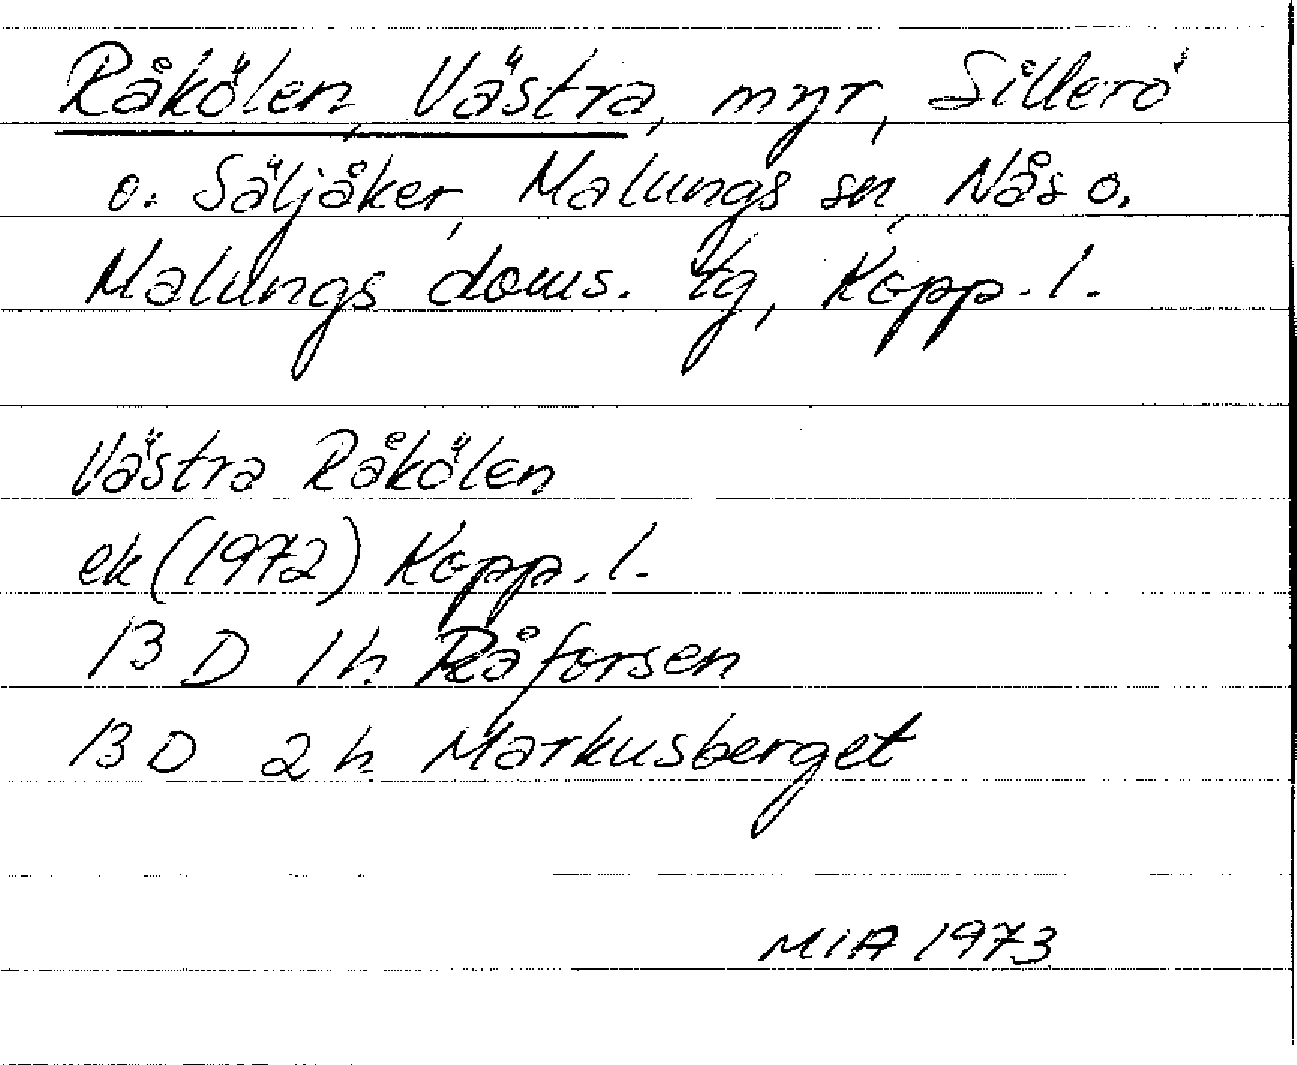 Råkölen, Västra, myr, Sillerö
o. Säljåker, Malungs sn, Nås o.
Malungs doms. tg, Kopp. l.
Västra Råkölen
ek (1972) Kopp. l.
13 D 1 h Råforsen
13 D 2 h Markusberget
MIA 1973